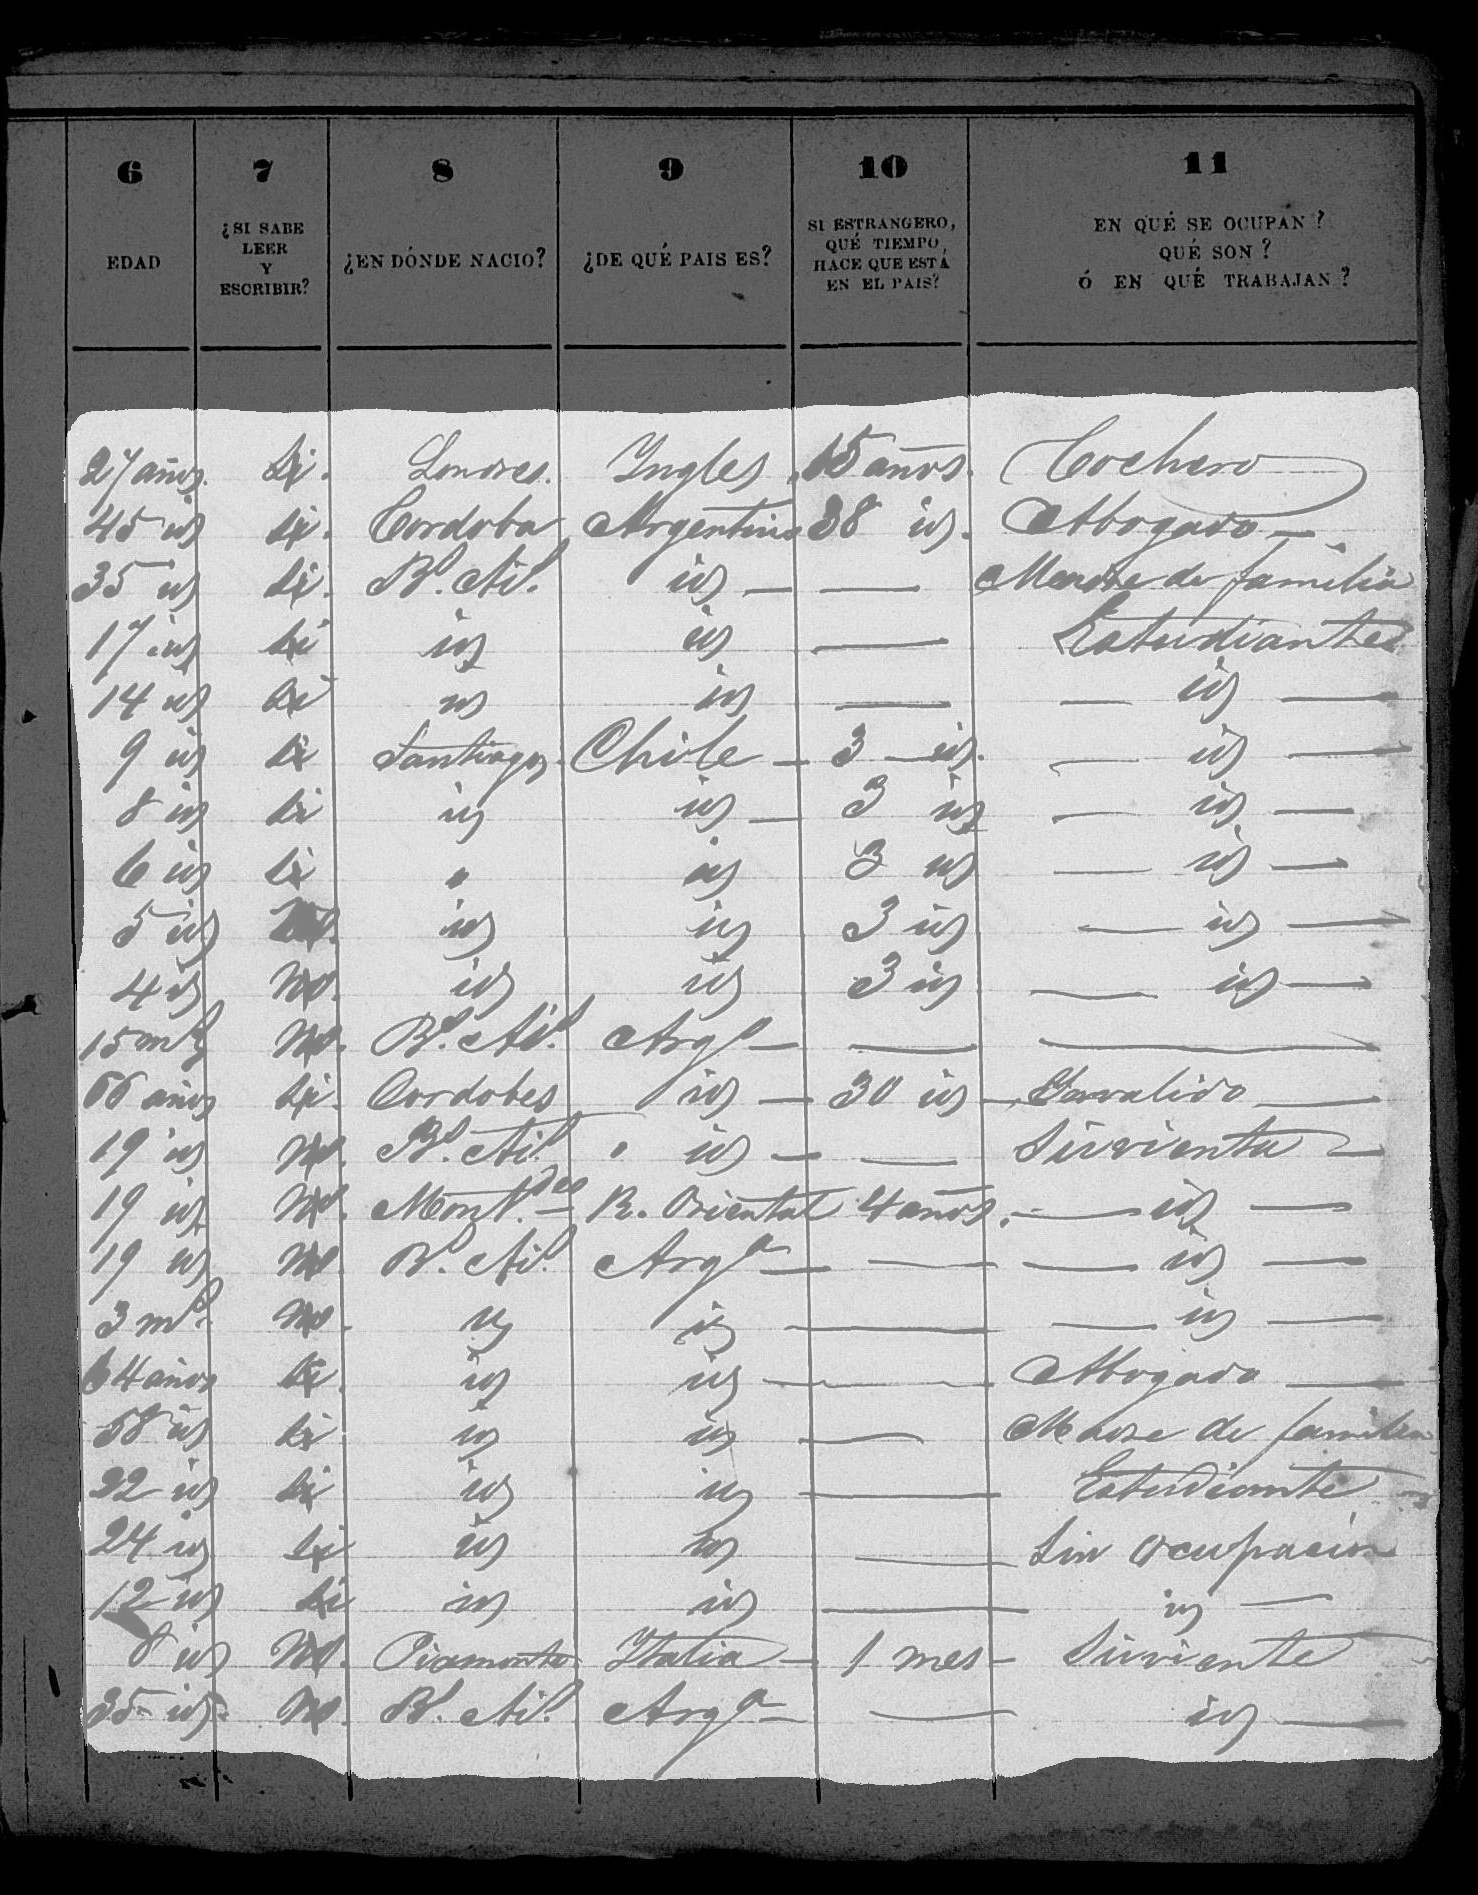 6 7 8 9 10 11
EDAD ¿SI SABE LEER Y ESCRIBIR? ¿EN DÓNDE NACIO? ¿DE QUÉ PAIS ES? SI ESTRANGERO, QUÉ TIEMPO, HACE QUE ESTÁ EN EL PAIS? EN QUÉ SE OCUPAN? QUÉ SON? Ó EN QUÉ TRABAJAN?
27 años Si. Londres. Ingles 15 años. Cochero
45 id Si. Cordoba Argentino 38 id. Abogado —
35 id Si. Bs. Ais. id — — Madre de familia
17 id Si id id — Estudiante
14 id Si id id — — id —
9 id Si Santiago Chile — 3 — id. — id —
8 id Si id id — 3 id — id —
6 id Si " id 3 id — id —
5 id id id 3 id — id —
4 id No. id id 3 id — id —
15 ms No. Bs. Ais. Argo — — —
66 años Si. Cordobes id — 30 id — Invalido —
19 id No. Bs. Ais. " id — — Sirvienta —
19 id No. Montdeo — R. Oriental 4 años. — id —
19 id No Bs. Ais. Arga — — — id —
3 ms. No. id id — — id —
64 años Si id id — Abogado —
58 id Si id id — Madre de familia
22 id Si id id — Estudiante —
24 id Si id id — Sin ocupacion
12 id Si id id — id —
8 id No. Piamonte Italia — 1 mes — Sirviente
35 id. No. Bs. Ais. Arga — — id —